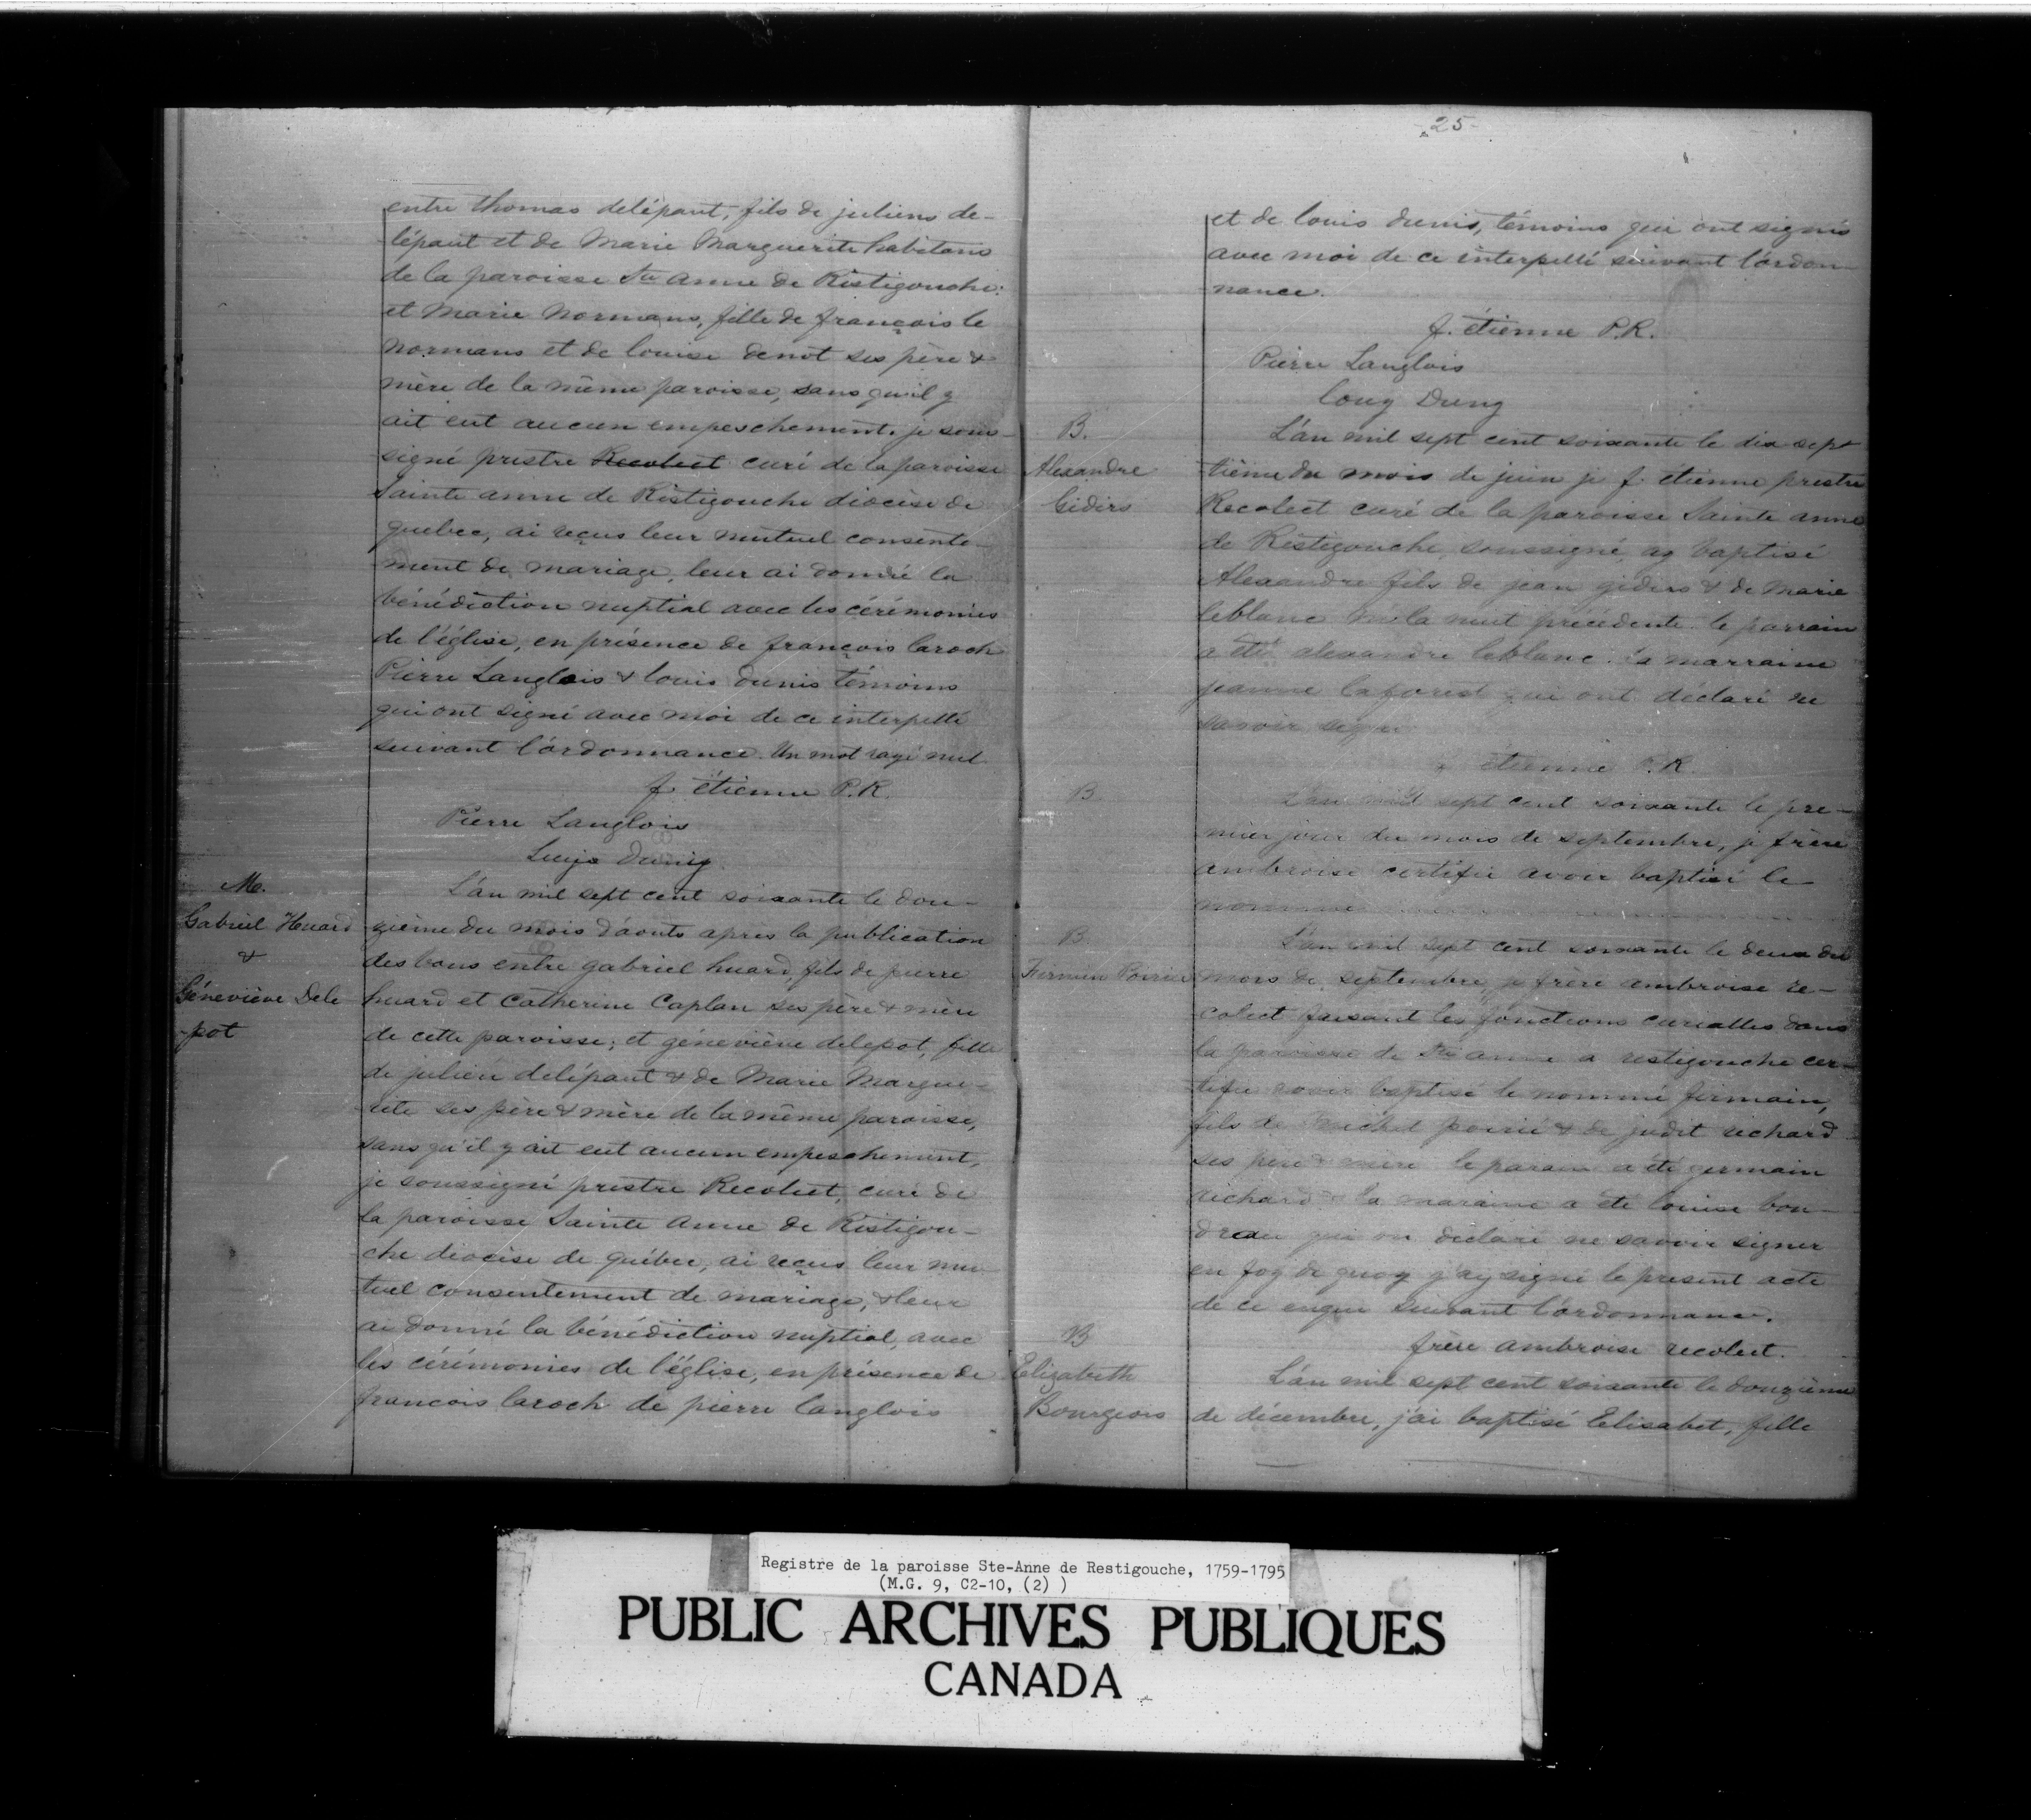 entre thomas delépaut, fils de juliens de-
lépaut et de Marie Marguerite habitans
de la paroisse Ste anne de Ristigouche:
et Marie Normans, fille de françois le
normans et de louise denot ses père &
mère de la même paroisse, sans qu'il y
ait eut aucun empeschement. je sous-
signé prestre Recolect curé de la paroisse
Sainte anne de Ristigouche diocèse de
quebec, ai reçus leur mutuel consente-
ment de mariage, leur ai donné la
bénédiction nuptial avec les cérémonies
de l'église, en présence de françois laroch
Pierre Langlois & louis dunis témoins
qui ont signé avec moi de ce interpellé
suivant l'ordonnance. Un mot rayé nul
f. étienne P.R.
Pierre Langlois
Luijs Duniy
M.
Gabriel Huard
&
Géneviève Dele
-pot
L'an mil sept cent soixante le dou-
zième du mois d'aouts après la publication
des bans entre gabriel huard, fils de pierre
huard et Catherine Caplan ses père & mère
de cette paroisse; et géneviève delepot, fille
de julien delépaut & de Marie Margue-
rite ses père & mère de la même paroisse,
sans qu'il y ait eut aucun empeschement,
je soussigné prestre Recolect, curé de
la paroisse Sainte Anne de Ristigou-
che diocèse de québec, ai reçus leur mu-
tuel consentement de mariage, & leur
ai donné la bénédiction nuptial, avec
les cérémonies de l'église, en présence de
françois laroch de pierre langlois
-25-
et de louis dunis, témoins qui ont signés
avec moi de ce interpellé suivant l'ordon-
nance.
f. étienne P.R.
Pierre Langlois
Louy Duny
B.
Alexandre
Giders
L'an mil sept cent soixante le dix sept
tième du mois de juin je f. étienne prestre
Recolect curé de la paroisse Sainte anne
de Ristigouche, soussigné, ay baptisé
Alexandre fils de jean giders & de Marie
leblanc né la nuit précédente. le parrain
a été alexandre leblanc. la marraine
jeanne laforest qui ont déclaré ne
savoir signer
f. étienne P.R.
B.
L'an mil sept cent soixante le pre-
mier jour du mois de septembre, je frère
ambroise certifie avoir baptisé le
nommé
B.
Firmin Poirier
L'an mil sept cent soixante le deux du
mois de septembre, je frère ambroise re-
colect faisant les fonctions curialles dans
la paroisse de Ste anne a restigouche cer-
tifie avoir baptisé le nommé firmain,
fils de michel poirié & de judit richard
ses père & mère le parain a été germain
richard & la maraine a été louise bou-
dreau qui on declaré ne savoir signer
en foy de quoy j'ay signé le present acte
de ce enquis suivant l'ordonnance.
frère ambroise recolect.
B
Elizabeth
Bourgeois
L'an mil sept cent soixante le douzième
de décembre, j'ai baptisé Elisabet, fille
Registre de la paroisse Ste-Anne de Restigouche, 1759-1795
(M.G. 9, C2-10, (2) )
PUBLIC ARCHIVES PUBLIQUES
CANADA